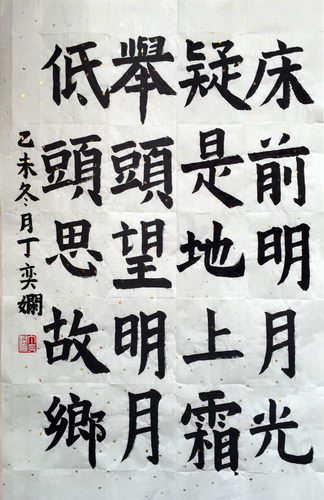 床前明月光
疑是地上霜
舉頭望明月
低頭思故鄉
乙未冬月丁奕嫻